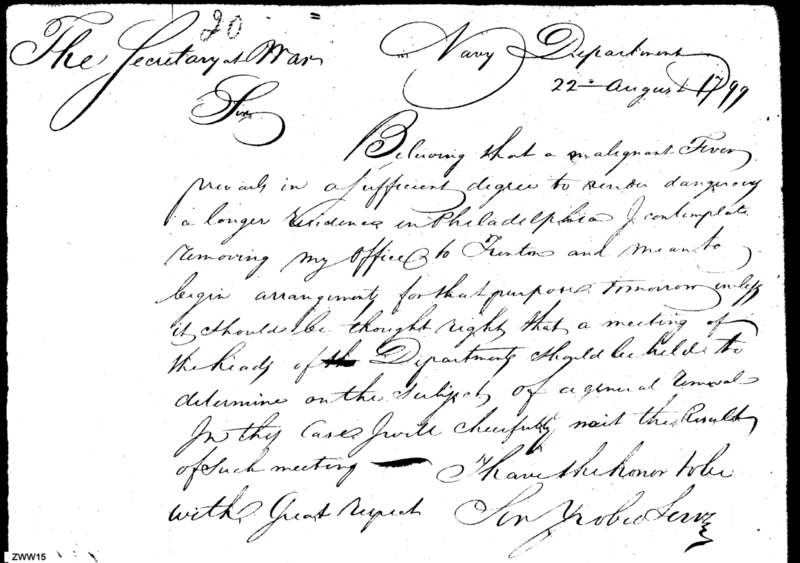 20
The Secretary at War
Navy Department
22 August 1799
Sir
Believing that a malignant Fever
prevails in a sufficient degree to render dangerous
a longer residence in Philadelphia I contemplate
removing my office to Trenton and mean to
begin arrangements for that purpose tomorrow unless
it should be thought right that a meeting of
the heads of Departments should be held to
determine on the subject of a general removal
In this Case I will cheerfully wait the Result
of such meeting I have the honor to be
with Great respect Sir Yr obed Servt
ZWW15